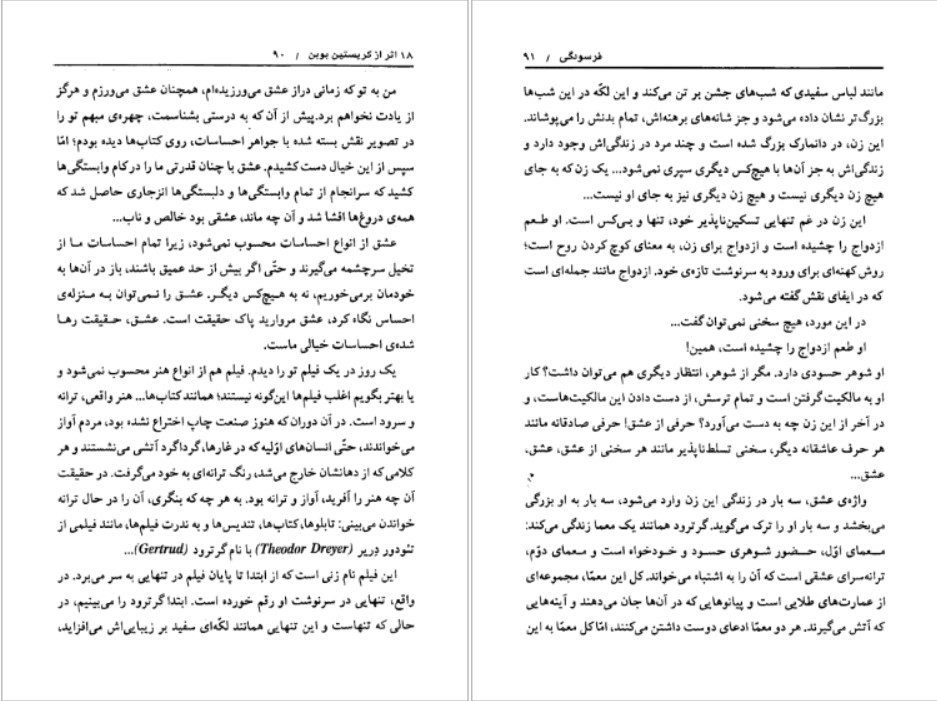 ۱۸ اثر از کریستین بوبن / ۹۰
من به تو که زمانی دراز عشق می‌ورزیده‌ام، همچنان عشق می‌ورزم و هرگز
از یادت نخواهم برد. پیش از آن که به درستی بشناسمت، چهره‌ی مبهم تو را
در تصویر نقش بسته شده با جواهر احساسات، روی کتاب‌ها دیده بودم؛ امّا
سپس از این خیال دست کشیدم. عشق با چنان قدرتی ما را در کام وابستگی‌ها
کشید که سرانجام از تمام وابستگی‌ها و دلبستگی‌ها انزجاری حاصل شد که
همه‌ی دروغ‌ها افشا شد و آن چه ماند، عشقی بود خالص و ناب...
عشق از انواع احساسات محسوب نمی‌شود، زیرا تمام احساسات ما از
تخیل سرچشمه می‌گیرند و حتّی اگر بیش از حد عمیق باشند، باز در آن‌ها به
خودمان برمی‌خوریم، نه به هیچ‌کس دیگر. عشق را نمی‌توان به منزله‌ی
احساس نگاه کرد، عشق مروارید پاک حقیقت است. عشق، حقیقت رها
شده‌ی احساسات خیالی ماست.
یک روز در یک فیلم تو را دیدم. فیلم هم از انواع هنر محسوب نمی‌شود و
یا بهتر بگویم اغلب فیلم‌ها این‌گونه نیستند؛ همانند کتاب‌ها... هنر واقعی، ترانه
و سرود است. در آن دوران که هنوز صنعت چاپ اختراع نشده بود، مردم آواز
می‌خواندند، حتّی انسان‌های اوّلیه که در غارها، گرداگرد آتشی می‌نشستند و هر
کلامی که از دهانشان خارج می‌شد، رنگ ترانه‌ای به خود می‌گرفت. در حقیقت
آن چه هنر را آفرید، آواز و ترانه بود. به هر چه که بنگری، آن را در حال ترانه
خواندن می‌بینی: تابلوها، کتاب‌ها، تندیس‌ها و به ندرت فیلم‌ها، مانند فیلمی از
تئودور دِریر (Theodor Dreyer) با نام گرترود (Gertrud)...
این فیلم نام زنی است که از ابتدا تا پایان فیلم در تنهایی به سر می‌برد. در
واقع، تنهایی در سرنوشت او رقم خورده است. ابتدا گرترود را می‌بینیم، در
حالی که تنهاست و این تنهایی همانند لکّه‌ای سفید بر زیبایی‌اش می‌افزاید،
فرسودگی / ۹۱
مانند لباس سفیدی که شب‌های جشن بر تن می‌کند و این لکّه در این شب‌ها
بزرگ‌تر نشان داده می‌شود و جز شانه‌های برهنه‌اش، تمام بدنش را می‌پوشاند.
این زن، در دانمارک بزرگ شده است و چند مرد در زندگی‌اش وجود دارد و
زندگی‌اش به جز آن‌ها با هیچ‌کس دیگری سپری نمی‌شود... یک زن که به جای
هیچ زن دیگری نیست و هیچ زن دیگری نیز به جای او نیست...
این زن در غم تنهایی تسکین‌ناپذیر خود، تنها و بی‌کس است. او طعم
ازدواج را چشیده است و ازدواج برای زن، به معنای کوچ کردن روح است؛
روش کهنه‌ای برای ورود به سرنوشت تازه‌ی خود. ازدواج مانند جمله‌ای است
که در ایفای نقش گفته می‌شود.
در این مورد، هیچ سخنی نمی‌توان گفت...
او طعم ازدواج را چشیده است، همین!
او شوهر حسودی دارد. مگر از شوهر، انتظار دیگری هم می‌توان داشت؟ کار
او به مالکیت گرفتن است و تمام ترسش، از دست دادن این مالکیت‌هاست، و
در آخر از این زن چه به دست می‌آورد؟ حرفی از عشق! حرفی صادقانه مانند
هر حرف عاشقانه دیگر، سخنی تسلط‌ناپذیر مانند هر سخنی از عشق، عشق،
عشق...
واژه‌ی عشق، سه بار در زندگی این زن وارد می‌شود، سه بار به او بزرگی
می‌بخشد و سه بار او را ترک می‌گوید. گرترود همانند یک معما زندگی می‌کند:
معمای اوّل، حضور شوهری حسود و خودخواه است و معمای دوّم،
ترانه‌سرای عشقی است که آن را به اشتباه می‌خواند. کل این معمّا، مجموعه‌ای
از عمارت‌های طلایی است و پیانوهایی که در آن‌ها جان می‌دهند و آینه‌هایی
که آتش می‌گیرند. هر دو معمّا ادعای دوست داشتن می‌کنند، امّا کل معمّا به این